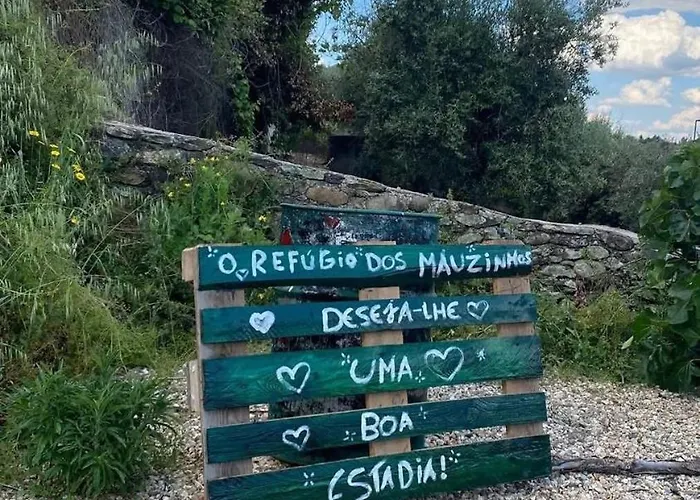 O REFÚGIO DOS MAUZINHOS
DESEJA-LHE
UMA
BOA
ESTADIA!